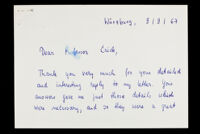 Würzburg, 3/8/67
Dear Professor Erich,
Thank you very much for your detailed
and interesting reply to my letter. Your
answers gave me just those details which
were necessary, and so they were a great